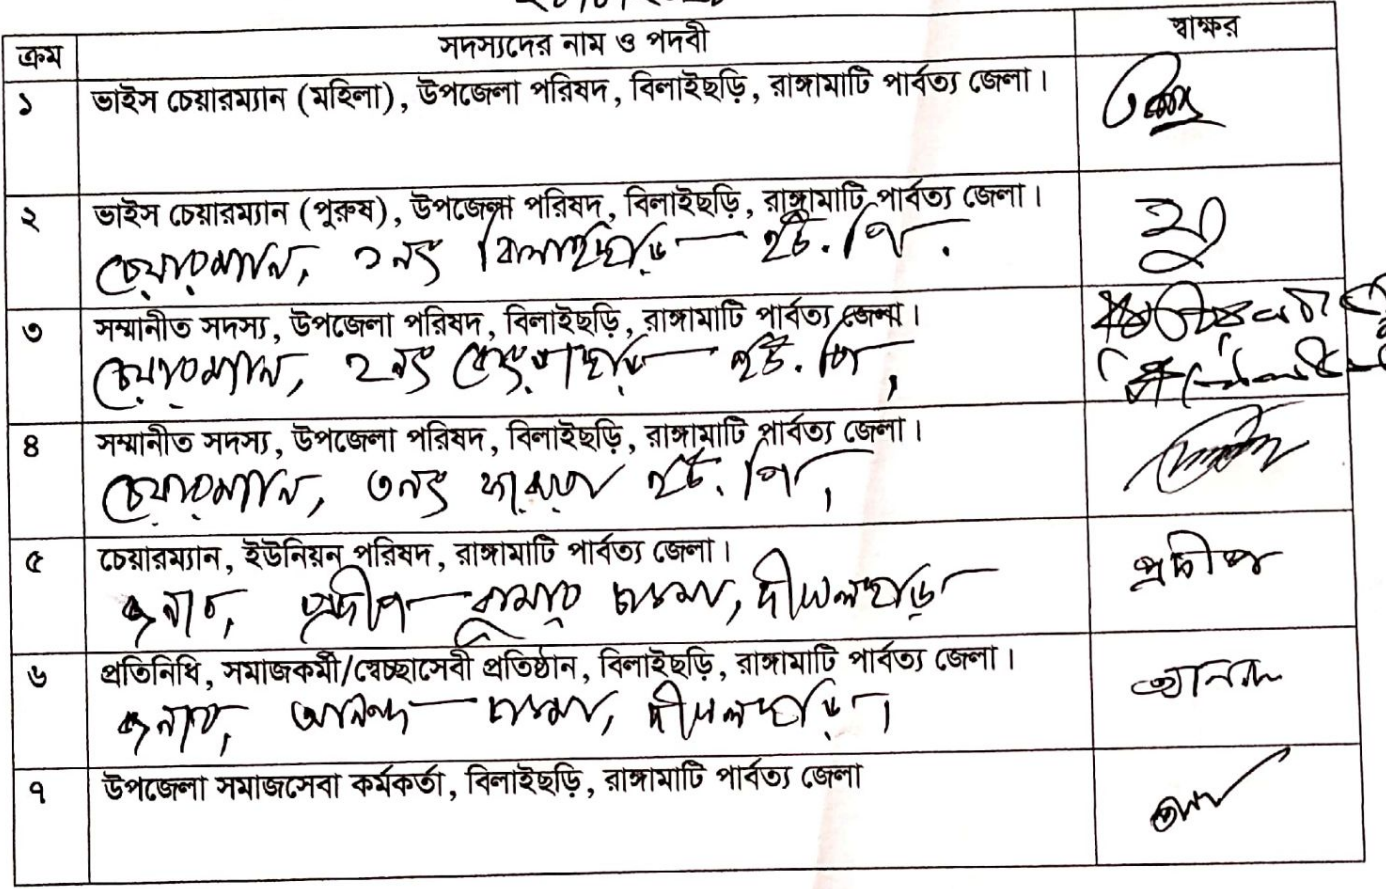 ক্রম সদস্যদের নাম ও পদবী স্বাক্ষর
১ ভাইস চেয়ারম্যান (মহিলা), উপজেলা পরিষদ, বিলাইছড়ি, রাঙ্গামাটি পার্বত্য জেলা।
২ ভাইস চেয়ারম্যান (পুরুষ), উপজেলা পরিষদ, বিলাইছড়ি, রাঙ্গামাটি পার্বত্য জেলা।
চেয়ারম্যান, ১নং বিলাইছড়ি ইউ.পি.
৩ সম্মানীত সদস্য, উপজেলা পরিষদ, বিলাইছড়ি, রাঙ্গামাটি পার্বত্য জেলা।
চেয়ারম্যান, ২নং কেংড়াছড়ি ইউ.পি,
৪ সম্মানীত সদস্য, উপজেলা পরিষদ, বিলাইছড়ি, রাঙ্গামাটি পার্বত্য জেলা।
চেয়ারম্যান, ৩নং ফারুয়া ইউ.পি,
৫ চেয়ারম্যান, ইউনিয়ন পরিষদ, রাঙ্গামাটি পার্বত্য জেলা। প্রদীপ
জনাব, প্রদীপ কুমার চাকমা, দীঘলছড়ি
৬ প্রতিনিধি, সমাজকর্মী/স্বেচ্ছাসেবী প্রতিষ্ঠান, বিলাইছড়ি, রাঙ্গামাটি পার্বত্য জেলা। আনন্দ
জনাব, আনন্দ চাকমা, দীঘলছড়ি।
৭ উপজেলা সমাজসেবা কর্মকর্তা, বিলাইছড়ি, রাঙ্গামাটি পার্বত্য জেলা